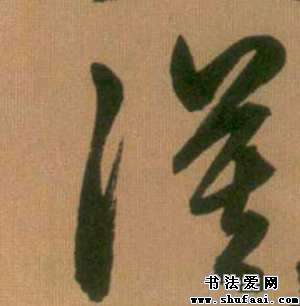 漢
书法爱网
www.shufaai.com